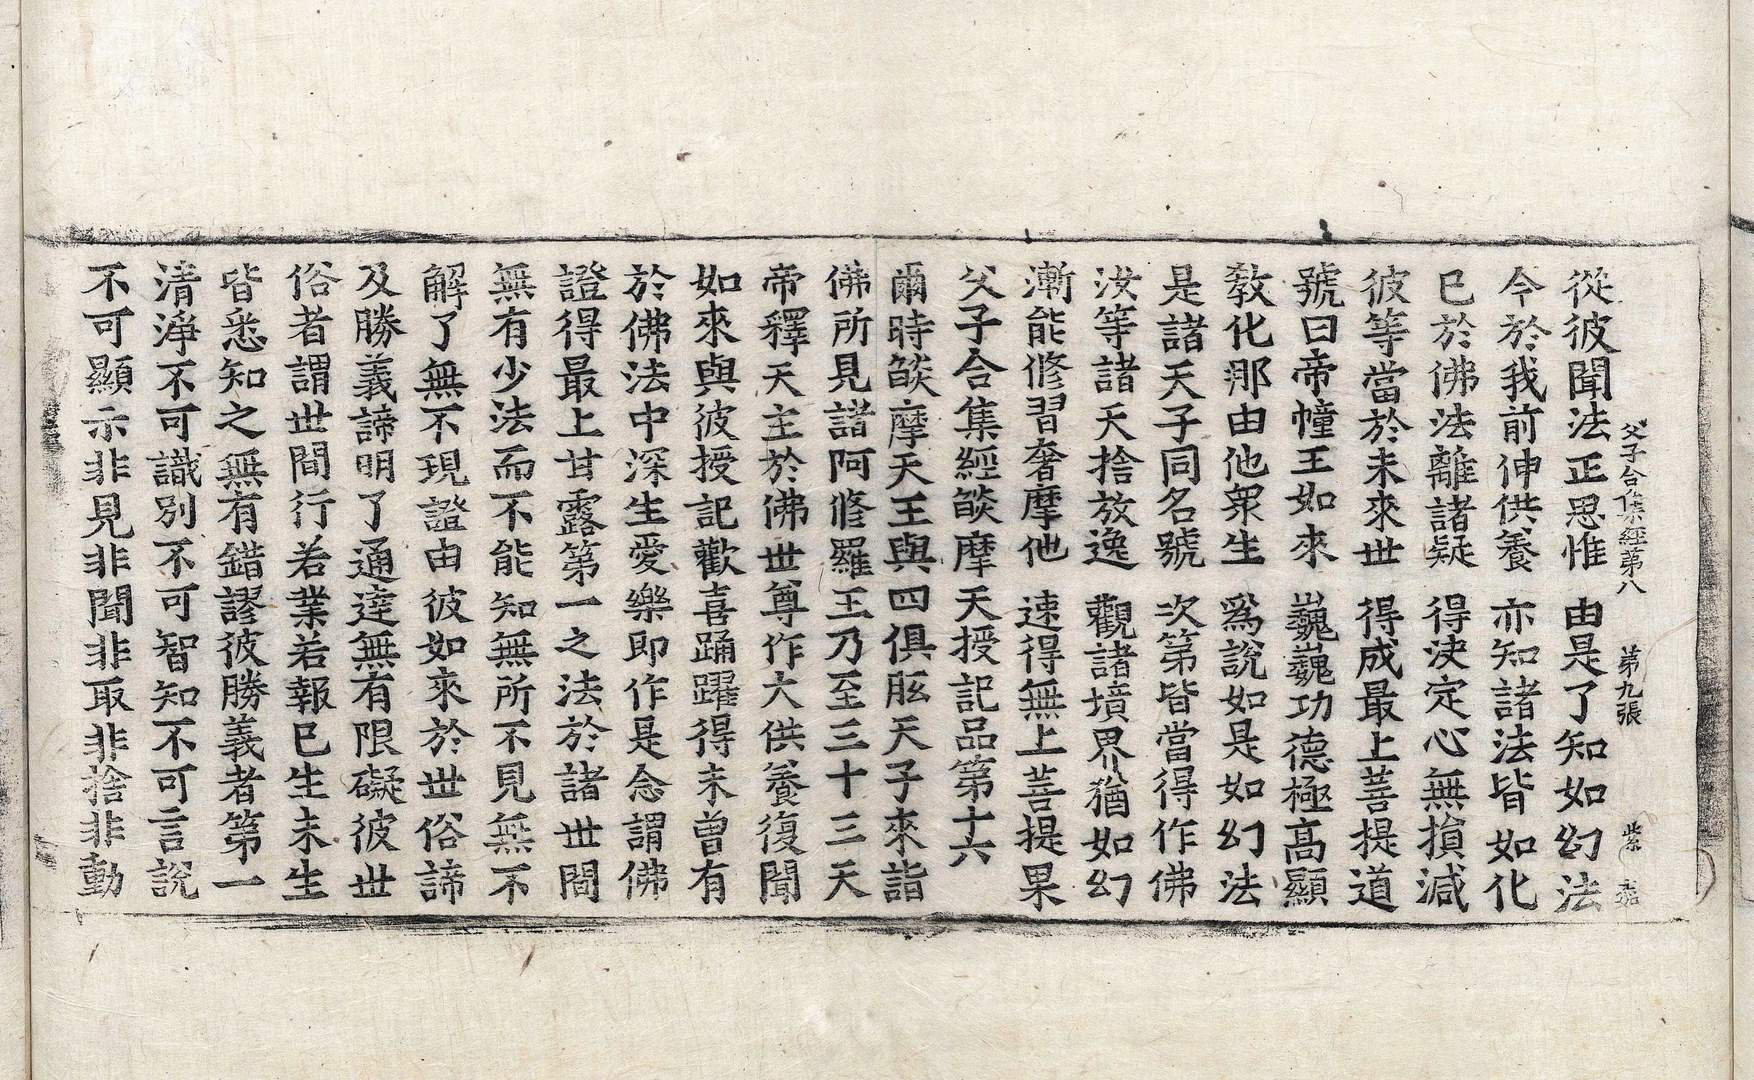 父子合集經第八 第九張 紫
從彼聞法正思惟 由是了知如幻法
今於我前伸供養 亦知諸法皆如化
已於佛法離諸疑 得決定心無損減
彼等當於未來世 得成最上菩提道
號曰帝幢王如來 巍巍功德極高顯
敎化那由他衆生 爲說如是如幻法
是諸天子同名號 次第皆當得作佛
汝等諸天捨放逸 觀諸境界猶如幻
漸能修習奢摩他 速得無上菩提果
父子合集經燄摩天授記品第十六
爾時燄摩天王與四俱胝天子來詣
佛所見諸阿修羅王乃至三十三天
帝釋天主於佛世尊作大供養復聞
如來與彼授記歡喜踊躍得未曾有
於佛法中深生愛樂即作是念謂佛
證得最上甘露第一之法於諸世間
無有少法而不能知無所不見無不
解了無不現證由彼如來於世俗諦
及勝義諦明了通達無有限礙彼世
俗者謂世間行若業若報已生未生
皆悉知之無有錯謬彼勝義者第一
清淨不可識別不可智知不可言說
不可顯示非見非聞非取非捨非動